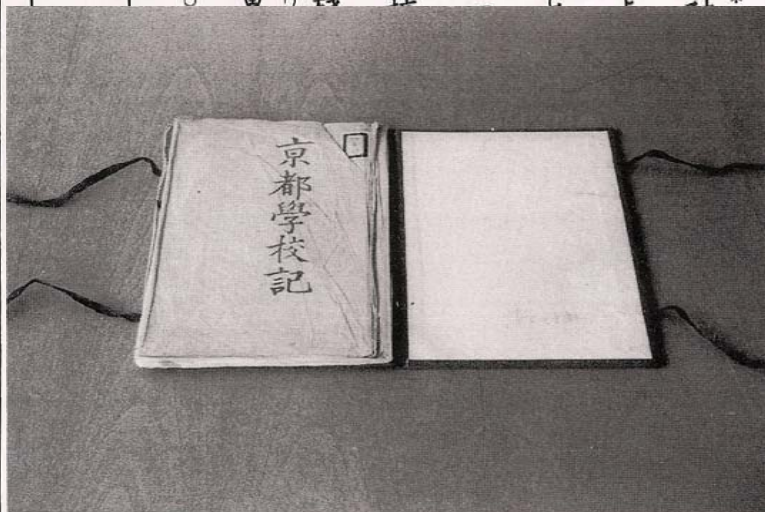 京都學校記